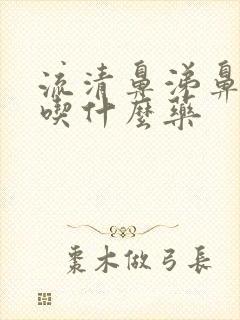 流清鼻涕鼻
喫什麼藥
棗木做弓長